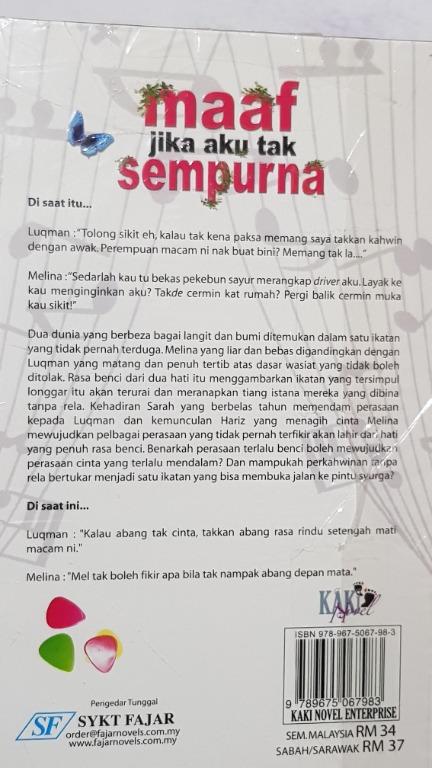 maaf
jika aku tak
sempurna
Di saat itu...
Luqman :"Tolong sikit eh, kalau tak kena paksa memang saya takkan kahwin
dengan awak. Perempuan macam ni nak buat bini? Memang tak la...."
Melina :"Sedarlah kau tu bekas pekebun sayur merangkap driver aku. Layak ke
kau menginginkan aku? Takde cermin kat rumah? Pergi balik cermin muka
kau sikit!"
Dua dunia yang berbeza bagai langit dan bumi ditemukan dalam satu ikatan
yang tidak pernah terduga. Melina yang liar dan bebas digandingkan dengan
Luqman yang matang dan penuh tertib atas dasar wasiat yang tidak boleh
ditolak. Rasa benci dari dua hati itu menggambarkan ikatan yang tersimpul
longgar itu akan terurai dan meranapkan tiang istana mereka yang dibina
tanpa rela. Kehadiran Sarah yang berbelas tahun memendam perasaan
kepada Luqman dan kemunculan Hariz yang menagih cinta Melina
mewujudkan pelbagai perasaan yang tidak pernah terfikir akan lahir dari hati
yang penuh rasa benci. Benarkah perasaan terlalu benci boleh mewujudkan
perasaan cinta yang terlalu mendalam? Dan mampukah perkahwinan tanpa
rela bertukar menjadi satu ikatan yang bisa membuka jalan ke pintu syurga?
Di saat ini...
Luqman : "Kalau abang tak cinta, takkan abang rasa rindu setengah mati
macam ni."
Melina : "Mel tak boleh fikir apa bila tak nampak abang depan mata."
KAKI
Novel
ISBN 978-967-5067-98-3
9 789675 067983
KAKI NOVEL ENTERPRISE
SEM. MALAYSIA RM 34
SABAH/SARAWAK RM 37
Pengedar Tunggal
SF SYKT FAJAR
order@fajarnovels.com.my
www.fajarnovels.com.my